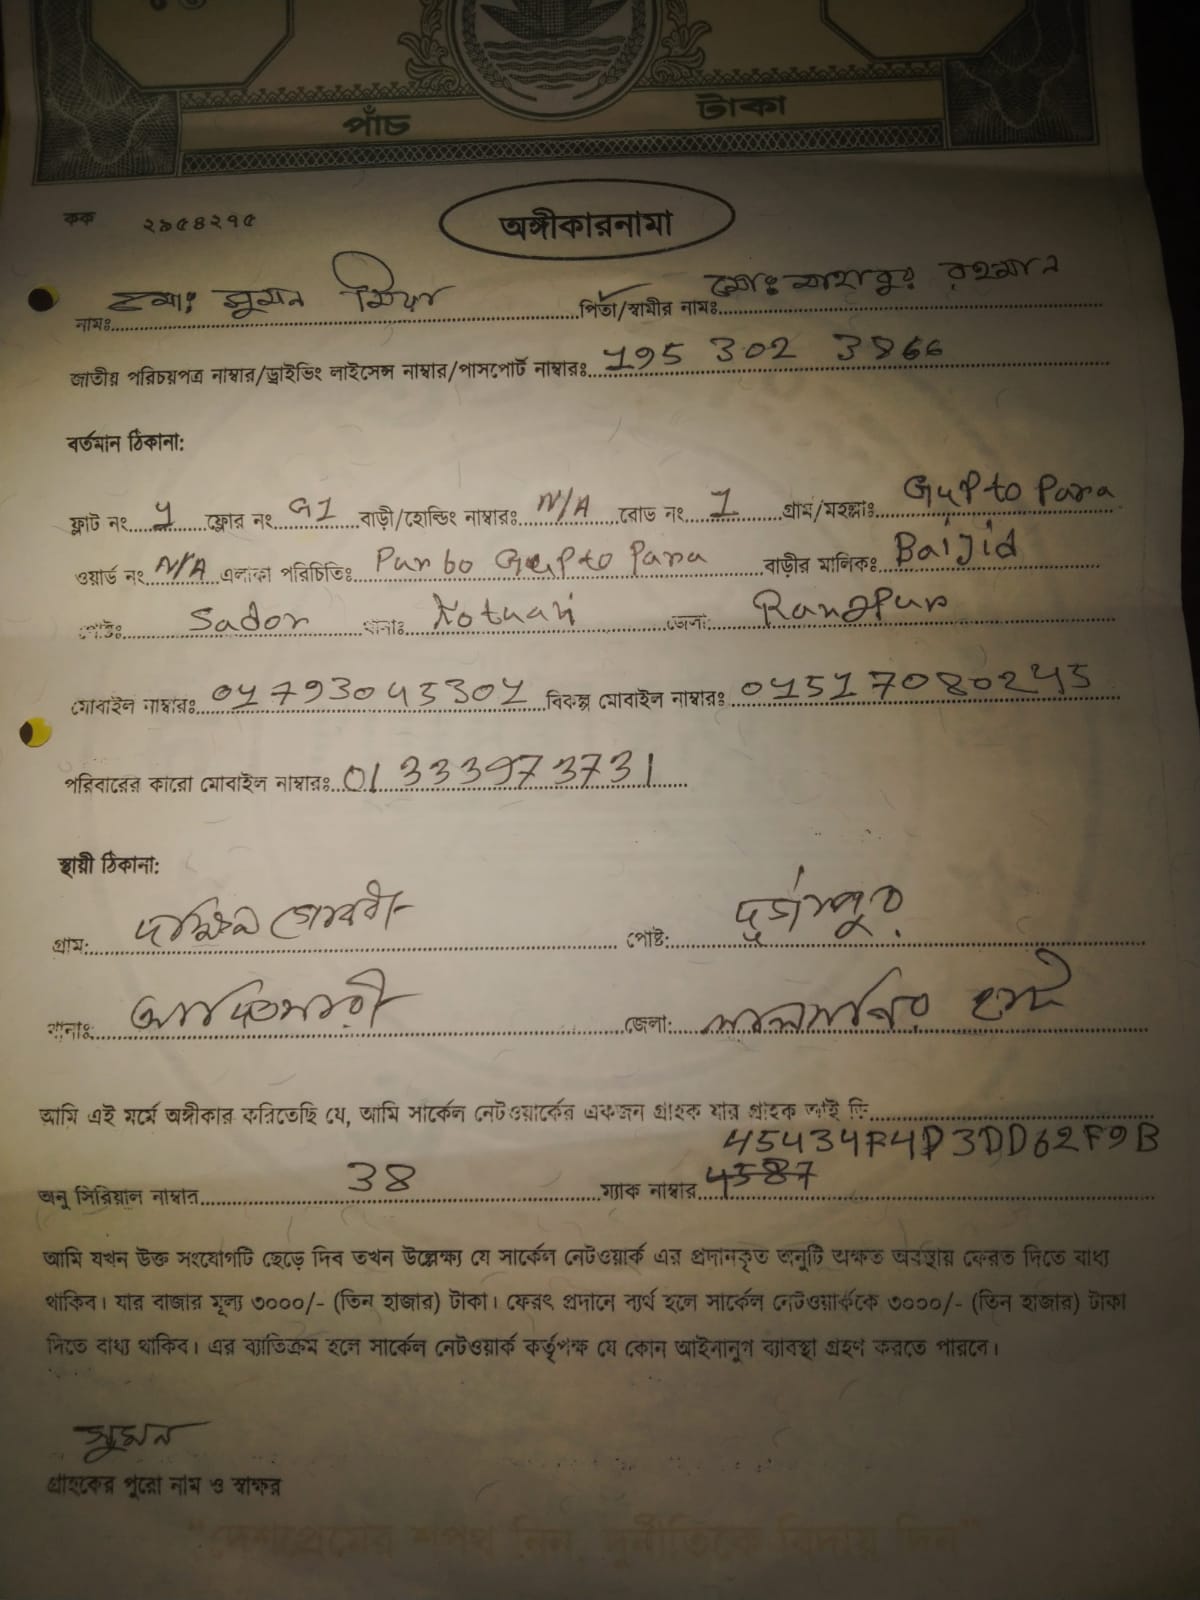 পাঁচ টাকা
কক ২৯৫৪২৭৫
অঙ্গীকারনামা
নামঃ মোঃ সুমন মিয়া পিতা/স্বামীর নামঃ মোঃ মাহাবুর রহমান
জাতীয় পরিচয়পত্র নাম্বার/ড্রাইভিং লাইসেন্স নাম্বার/পাসপোর্ট নাম্বারঃ 195 302 3866
বর্তমান ঠিকানা:
ফ্লাট নং 1 ফ্লোর নং G1 বাড়ী/হোল্ডিং নাম্বারঃ N/A রোড নং 1 গ্রাম/মহল্লাঃ Gupto Para
ওয়ার্ড নং N/A এলাকা পরিচিতিঃ Purbo Gupto Para বাড়ীর মালিকঃ Baijid
পোষ্টঃ Sador থানাঃ Kotuali জেলা: Rangpur
মোবাইল নাম্বারঃ 01793045301 বিকল্প মোবাইল নাম্বারঃ 01517080245
পরিবারের কারো মোবাইল নাম্বারঃ 01333973731
স্থায়ী ঠিকানা:
গ্রাম: দক্ষিন গোবধা পোষ্ট: দুর্গাপুর
থানাঃ আদিতমারী জেলা: লালমনির হাট
আমি এই মর্মে অঙ্গীকার করিতেছি যে, আমি সার্কেল নেটওয়ার্কের একজন গ্রাহক যার গ্রাহক আই ডি
45434F4D3DD62F9B
অনু সিরিয়াল নাম্বার 38 ম্যাক নাম্বার 4587
আমি যখন উক্ত সংযোগটি ছেড়ে দিব তখন উল্লেক্ষ্য যে সার্কেল নেটওয়ার্ক এর প্রদানকৃত অনুটি অক্ষত অবস্থায় ফেরত দিতে বাধ্য
থাকিব। যার বাজার মূল্য ৩০০০/- (তিন হাজার) টাকা। ফেরৎ প্রদানে ব্যর্থ হলে সার্কেল নেটওয়ার্ককে ৩০০০/- (তিন হাজার) টাকা
দিতে বাধ্য থাকিব। এর ব্যাতিক্রম হলে সার্কেল নেটওয়ার্ক কর্তৃপক্ষ যে কোন আইনানুগ ব্যাবস্থা গ্রহণ করতে পারবে।
সুমন
গ্রাহকের পুরো নাম ও স্বাক্ষর
"দেশপ্রেমের শপথ নিন, দুর্নীতিকে বিদায় দিন"